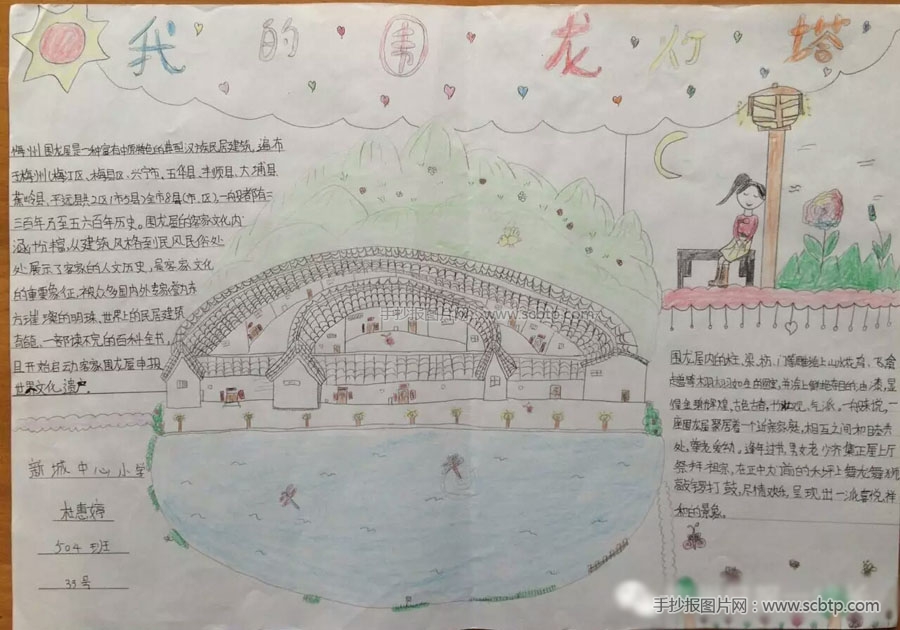 我的围龙灯塔
梅州围龙屋是一种富有中原特色的典型汉族民居建筑,遍布
于梅州(梅江区、梅县区、兴宁市、五华县、丰顺县、大埔县
蕉岭县、平远县共2区1市5县)全市8县(市、区),一般都有三
三百年乃至五六百年历史。围龙屋的客家文化内
涵十分丰富,从建筑风格到民风民俗处
处展示了客家的人文历史,是客家文化
的重要象征,被众多国内外专家誉为东
方璀璨的明珠、世界上的民居建筑
奇葩、一部读不完的百科全书,
且开始启动客家围龙屋申报
世界文化遗产
新城中心小学
杜惠婷
504班
33号
围龙屋内的柱、梁、枋、门等雕绘上山水花鸟、飞禽
走兽等栩栩如生的图案,并涂上鲜艳夺目的油漆,显
得金碧辉煌,古色古香,壮观、气派。一般来说,一
座围龙屋聚居着一个近亲家庭,相互之间和睦共
处,尊老爱幼。逢年过节,男女老少齐集正屋上厅
祭拜祖宗,在正中大门前的禾坪上舞龙舞狮
敲锣打鼓,尽情欢乐,呈现出一派喜悦祥
和的景象。
手抄报图片网 www.scbtp.com
手抄报图片网:www.scbtp.com